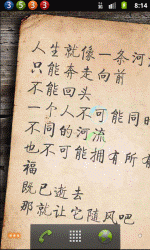 3 5 3 3
8:14
人生就像一条河
只能奔走向前
不能回头
一个人不可能同时
不同的河流
也不可能拥有所有
福
既已逝去
那就让它随风吧